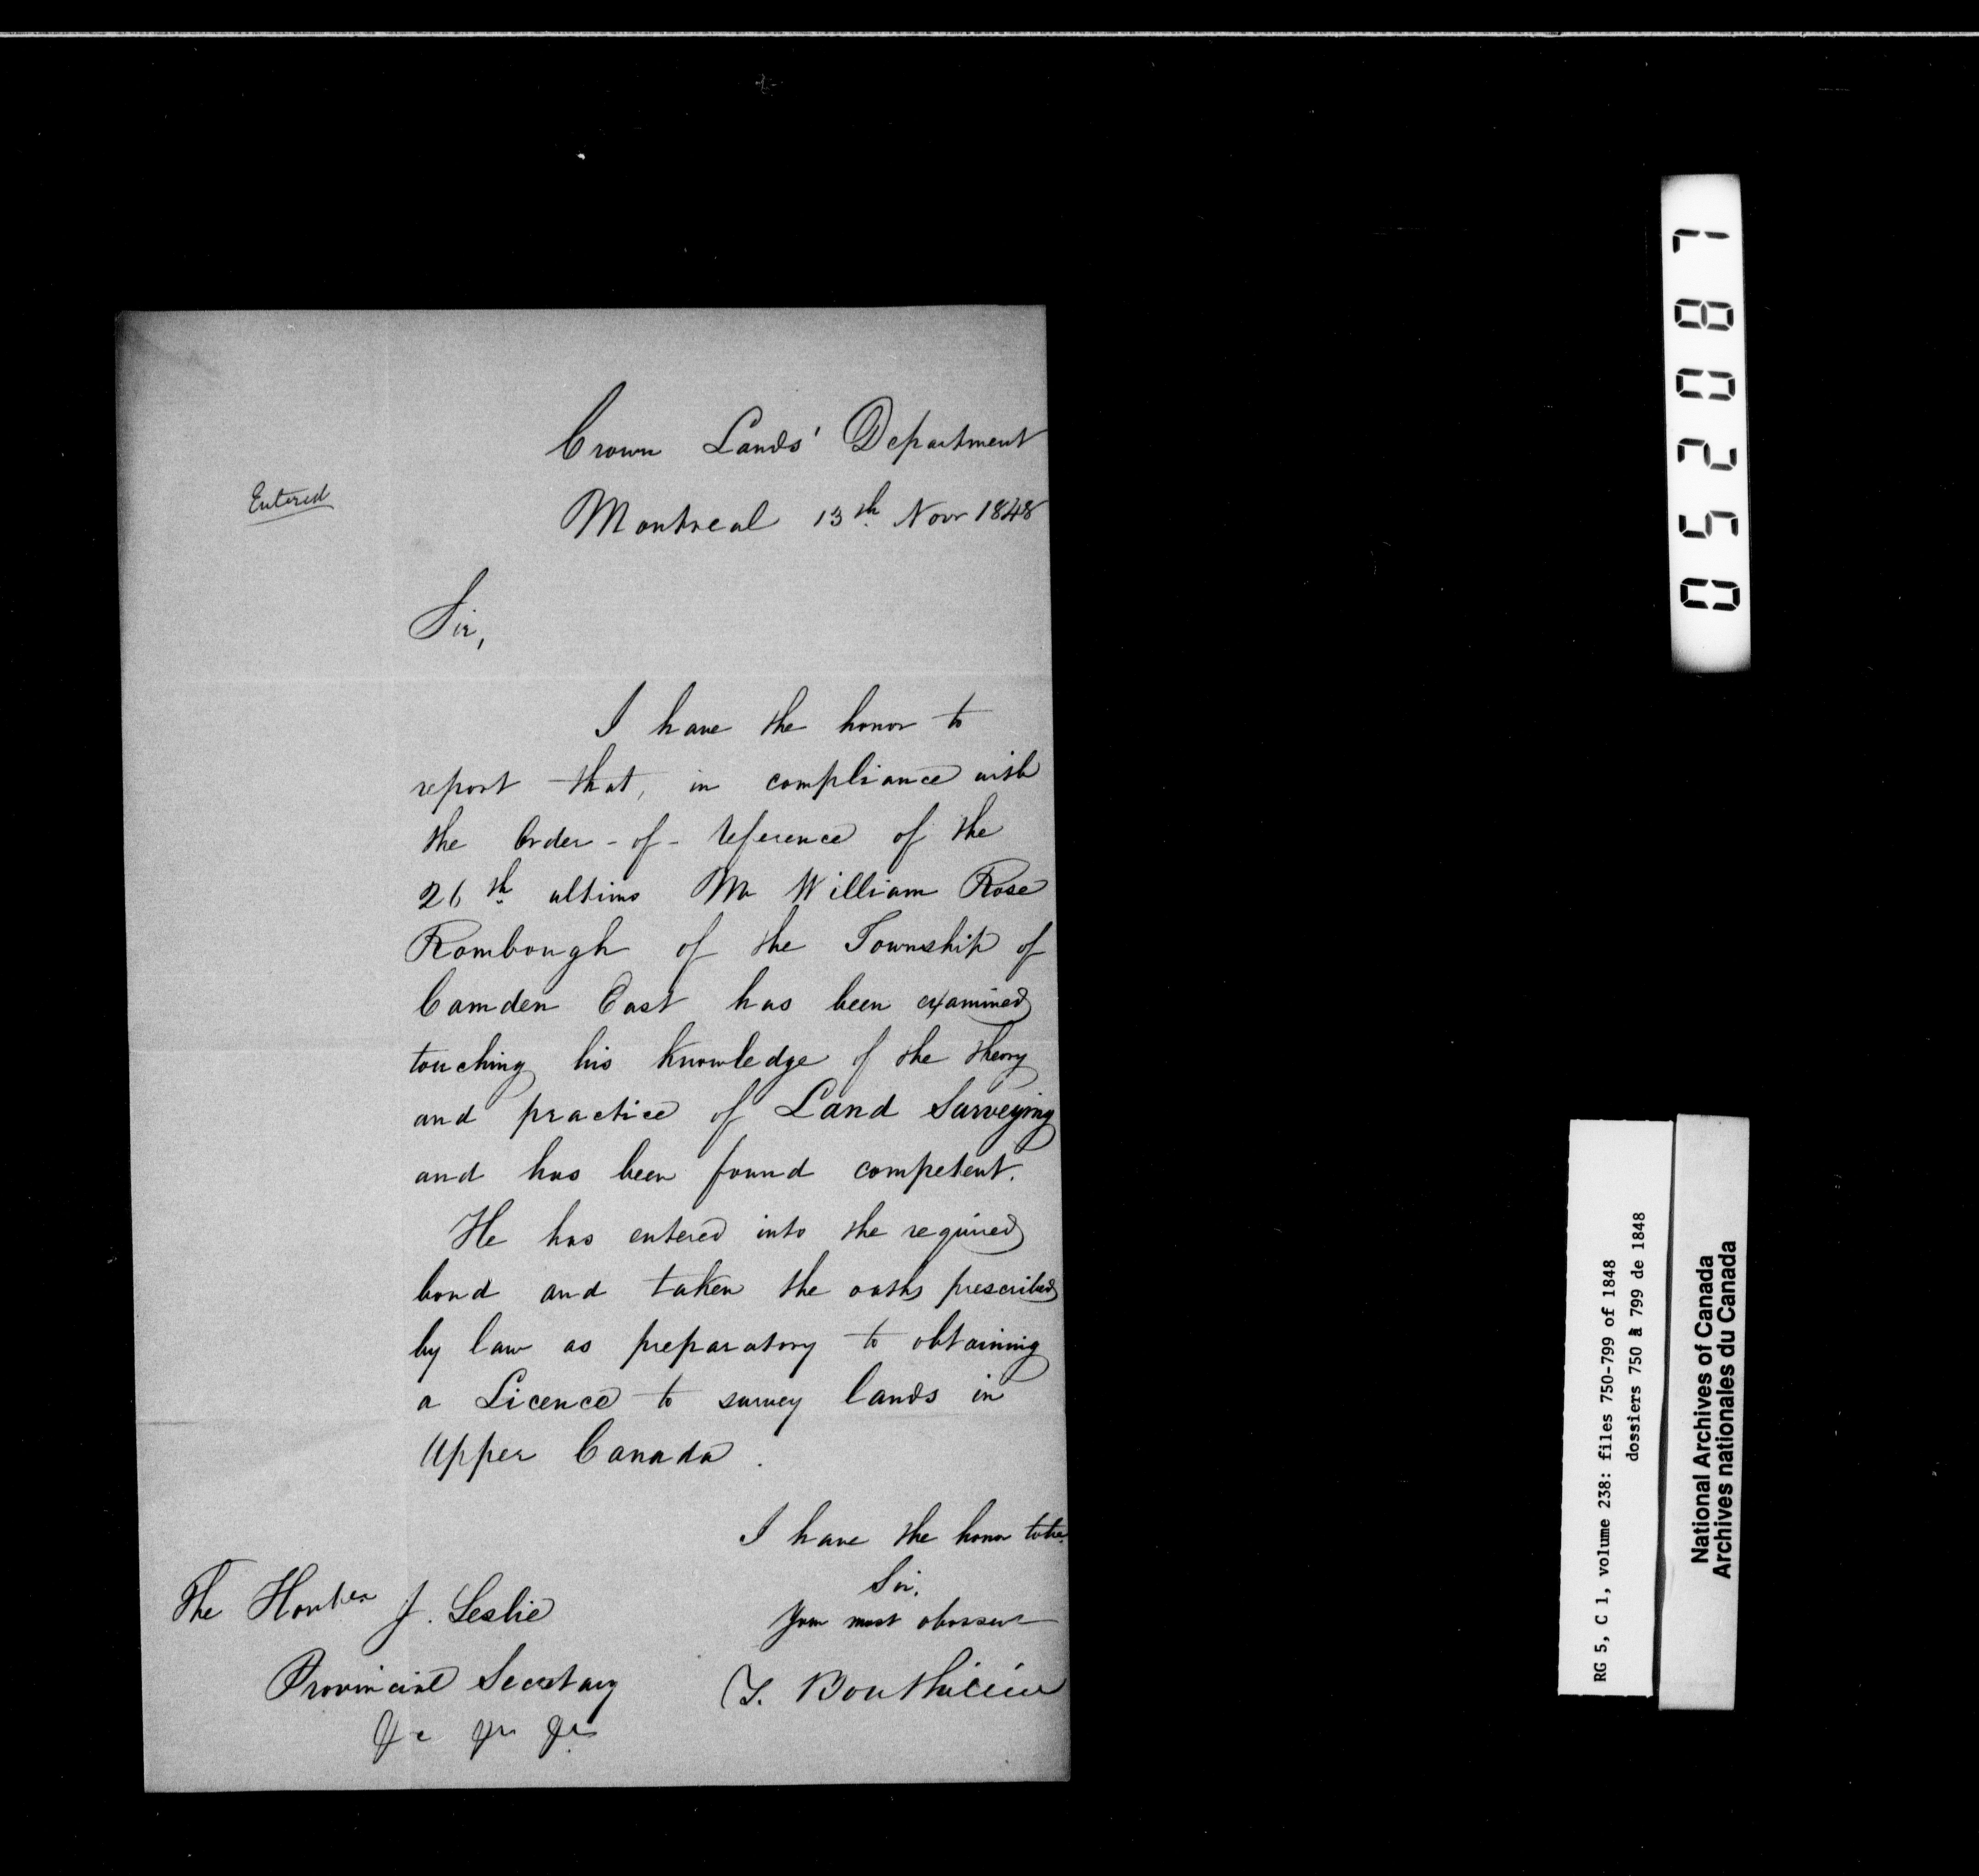 Crown Lands' Department
Entered
Montreal 13th Novr 1848
Sir,
I have the honor to
report that, in compliance with
the Order-of-reference of the
26th ultimo Mr William Rose
Rombough of the Township of
Camden East has been examined
touching his knowledge of the theory
and practice of Land Surveying
and has been found competent.
He has entered into the required
bond and taken the oaths prescribed
by law as preparatory to obtaining
a Licence to survey lands in
Upper Canada.
I have the honor to be
Sir,
Your most obdt servt
The Honble J. Leslie
T. Bouthillier
Provincial Secretary
&c &c &c
052087
RG 5, C 1, volume 238: files 750-799 of 1848
dossiers 750 à 799 de 1848
National Archives of Canada
Archives nationales du Canada